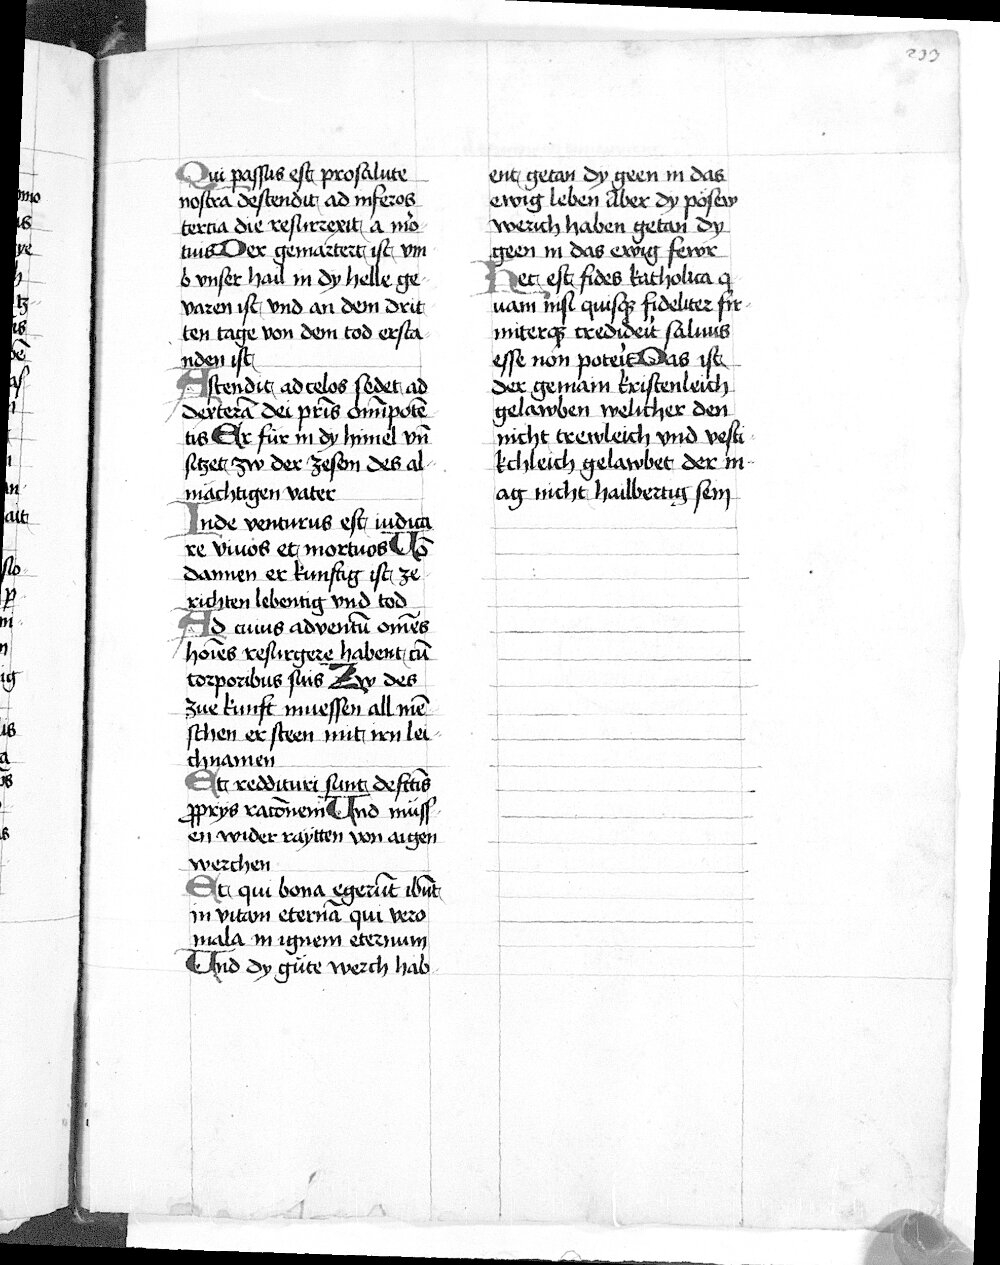 233
Qui passus est pro salute
nostra destendit ad inferos
tertia die resurrexit a mo᷑
tuis Der gemartert ist vm
b vnser hail in dy helle ge
varen ist vnd an dem drit
ten tage von dem tod ersta
nden ist
Astendit ad celos sedet ad
dexterā dei pr̄is om̄ipotē
tis Er fůr in dy himel vn̄
sitzet zw der zesen des al
mächtigen vater
Inde venturus est iudica
re viuos et mortuos Vō
dannen er kunftig ist ze
richten lebentig vnd tod
Ad cuius adventū om̄es
hoīes resurgere habent cū
corporibus suis Zw des
zue kunft muessen all mē
schen ersteen mit irn lei
chnamen
Et reddituri sunt de fc̄tis
ꝓprys racōnem Vnd müss
en wider raytten von aigen
werchen
Et qui bona egerūt ibūt
in vitam eternā qui vero
mala in ignem eternum
Vnd dy gůte werch hab
ent getan dy geen in das
ewig leben Aber dy pösew
werich haben getan dy
geen in das ewig fewr
Hec est fides katholica q
uam nisi quisqꝫ fideliter fir
miterqꝫ crediderit saluus
esse non poterit Das ist
der gemain kristenleich
gelawben welicher den
nicht trewleich vnd vesti
kchleich gelawbet der m
ag nicht hailbertig sein